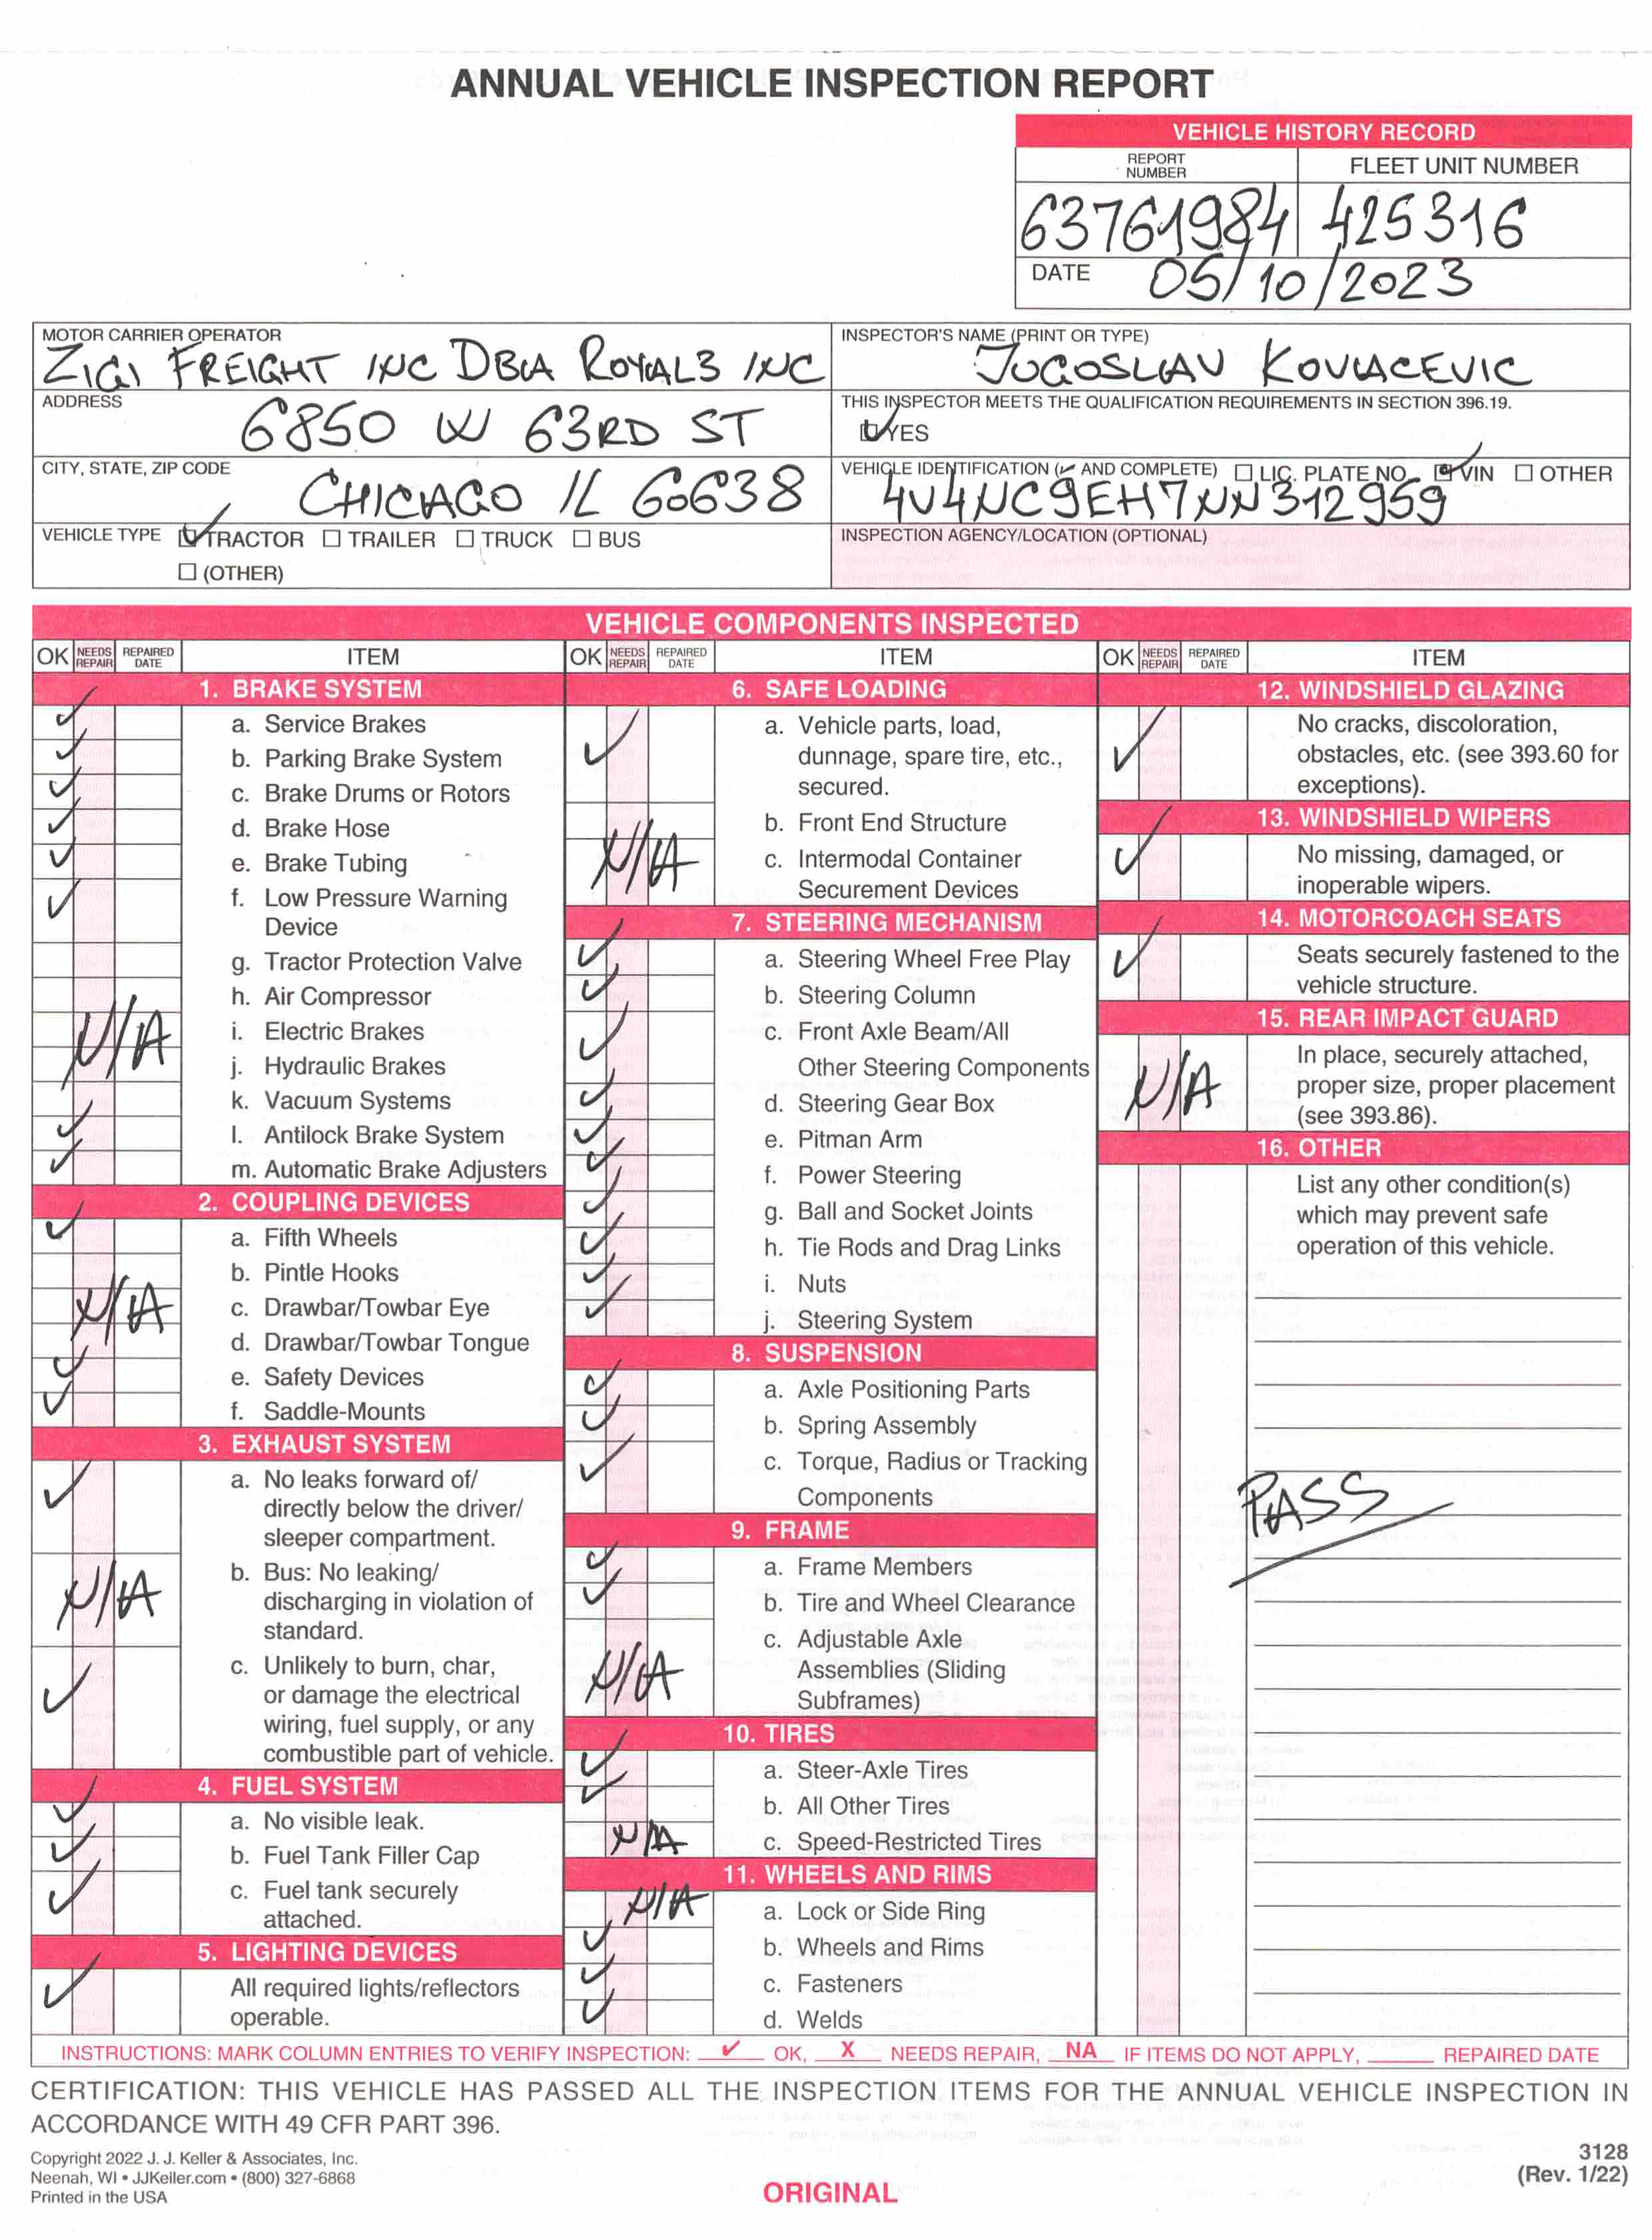 ANNUAL VEHICLE INSPECTION REPORT
VEHICLE HISTORY RECORD
REPORT NUMBER
FLEET UNIT NUMBER
63761984
425316
DATE 05/10/2023
MOTOR CARRIER OPERATOR
ZIGI FREIGHT INC DBA ROYAL3 INC
INSPECTOR'S NAME (PRINT OR TYPE)
JUGOSLAV KOVACEVIC
ADDRESS
6850 W 63RD ST
THIS INSPECTOR MEETS THE QUALIFICATION REQUIREMENTS IN SECTION 396.19.
✓ YES
CITY, STATE, ZIP CODE
CHICAGO IL 60638
VEHICLE IDENTIFICATION (✓ AND COMPLETE) ☐ LIC. PLATE NO. ✓ VIN ☐ OTHER
4V4NC9EH7NN312959
VEHICLE TYPE ✓ TRACTOR ☐ TRAILER ☐ TRUCK ☐ BUS
☐ (OTHER)
INSPECTION AGENCY/LOCATION (OPTIONAL)
VEHICLE COMPONENTS INSPECTED
OK NEEDS REPAIR REPAIRED DATE ITEM
1. BRAKE SYSTEM
✓ a. Service Brakes
✓ b. Parking Brake System
✓ c. Brake Drums or Rotors
✓ d. Brake Hose
✓ e. Brake Tubing
✓ f. Low Pressure Warning
Device
g. Tractor Protection Valve
h. Air Compressor
N/A i. Electric Brakes
j. Hydraulic Brakes
k. Vacuum Systems
✓ l. Antilock Brake System
✓ m. Automatic Brake Adjusters
2. COUPLING DEVICES
✓ a. Fifth Wheels
b. Pintle Hooks
N/A c. Drawbar/Towbar Eye
d. Drawbar/Towbar Tongue
✓ e. Safety Devices
✓ f. Saddle-Mounts
3. EXHAUST SYSTEM
✓ a. No leaks forward of/
directly below the driver/
sleeper compartment.
N/A b. Bus: No leaking/
discharging in violation of
standard.
✓ c. Unlikely to burn, char,
or damage the electrical
wiring, fuel supply, or any
combustible part of vehicle.
4. FUEL SYSTEM
✓ a. No visible leak.
✓ b. Fuel Tank Filler Cap
✓ c. Fuel tank securely
attached.
5. LIGHTING DEVICES
✓ All required lights/reflectors
operable.
OK NEEDS REPAIR REPAIRED DATE ITEM
6. SAFE LOADING
✓ a. Vehicle parts, load,
dunnage, spare tire, etc.,
secured.
b. Front End Structure
N/A c. Intermodal Container
Securement Devices
7. STEERING MECHANISM
✓ a. Steering Wheel Free Play
✓ b. Steering Column
✓ c. Front Axle Beam/All
Other Steering Components
✓ d. Steering Gear Box
✓ e. Pitman Arm
✓ f. Power Steering
✓ g. Ball and Socket Joints
✓ h. Tie Rods and Drag Links
✓ i. Nuts
✓ j. Steering System
8. SUSPENSION
✓ a. Axle Positioning Parts
✓ b. Spring Assembly
✓ c. Torque, Radius or Tracking
Components
9. FRAME
✓ a. Frame Members
✓ b. Tire and Wheel Clearance
N/A c. Adjustable Axle
Assemblies (Sliding
Subframes)
10. TIRES
✓ a. Steer-Axle Tires
✓ b. All Other Tires
N/A c. Speed-Restricted Tires
11. WHEELS AND RIMS
N/A a. Lock or Side Ring
✓ b. Wheels and Rims
✓ c. Fasteners
✓ d. Welds
OK NEEDS REPAIR REPAIRED DATE ITEM
12. WINDSHIELD GLAZING
✓ No cracks, discoloration,
obstacles, etc. (see 393.60 for
exceptions).
13. WINDSHIELD WIPERS
✓ No missing, damaged, or
inoperable wipers.
14. MOTORCOACH SEATS
✓ Seats securely fastened to the
vehicle structure.
15. REAR IMPACT GUARD
N/A In place, securely attached,
proper size, proper placement
(see 393.86).
16. OTHER
List any other condition(s)
which may prevent safe
operation of this vehicle.
PASS
INSTRUCTIONS: MARK COLUMN ENTRIES TO VERIFY INSPECTION: ✓ OK, X NEEDS REPAIR, NA IF ITEMS DO NOT APPLY, ____ REPAIRED DATE
CERTIFICATION: THIS VEHICLE HAS PASSED ALL THE INSPECTION ITEMS FOR THE ANNUAL VEHICLE INSPECTION IN
ACCORDANCE WITH 49 CFR PART 396.
Copyright 2022 J. J. Keller & Associates, Inc.
Neenah, WI • JJKeller.com • (800) 327-6868
Printed in the USA
ORIGINAL
3128
(Rev. 1/22)